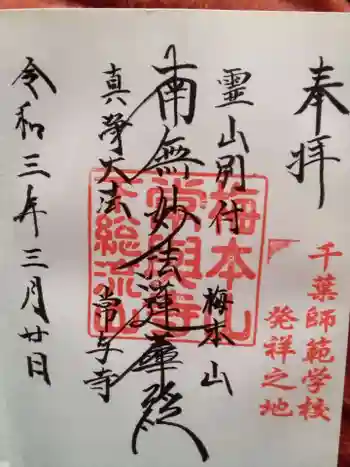 奉拝
千葉師範学校
発祥之地
霊山別付 梅本山
南無妙法蓮華経
真浄大法 常与寺
令和三年三月廿日
梅本山
常與寺
下総流山